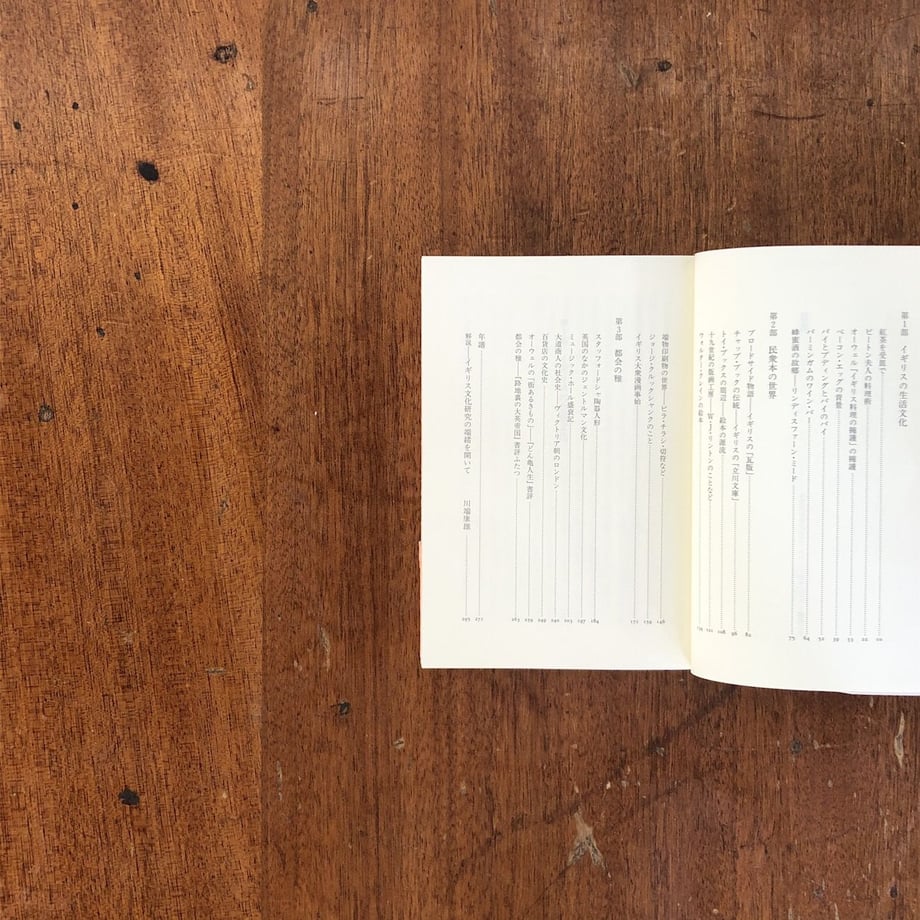 第1部 イギリスの生活文化
紅茶を受皿で 10
ビートン夫人の料理術 22
オーウェル「イギリス料理の擁護」の擁護 32
ベーコン・エッグの背景
パイとプディングとパイのパイ 52
バーミンガムのワイン・バー 64
蜂蜜酒の故郷――リンディスファーン・ミード 75
第2部 民衆本の世界
ブロードサイド物語――イギリスの「瓦版」 82
チャップ・ブックの伝統――イギリスの「立川文庫」 96
トイ・ブックスの周辺――絵本の源流 108
十九世紀の版画工房――W・J・リントンのことなど
ウォルター・クレインの絵本
端物印刷物の世界――ビラ・チラシ・切符など 146
ジョージ・クルックシャンクのこと 159
イギリス大衆漫画事始 171
第3部 都会の椎
スタッフォードシャ陶器人形 184
英国のなかのジェントルマン文化 197
ミュージック・ホール盛衰記 203
大道商人の社会史――ヴィクトリア朝のロンドン
百貨店の文化史 249
オーウェルの「街あるきもの」――『どん亀人生』書評 259
都会の椎――『路地裏の大英帝国』書評ふたつ 263
年譜 271
解説――イギリス文化研究の端緒を開いて 川端康雄 295